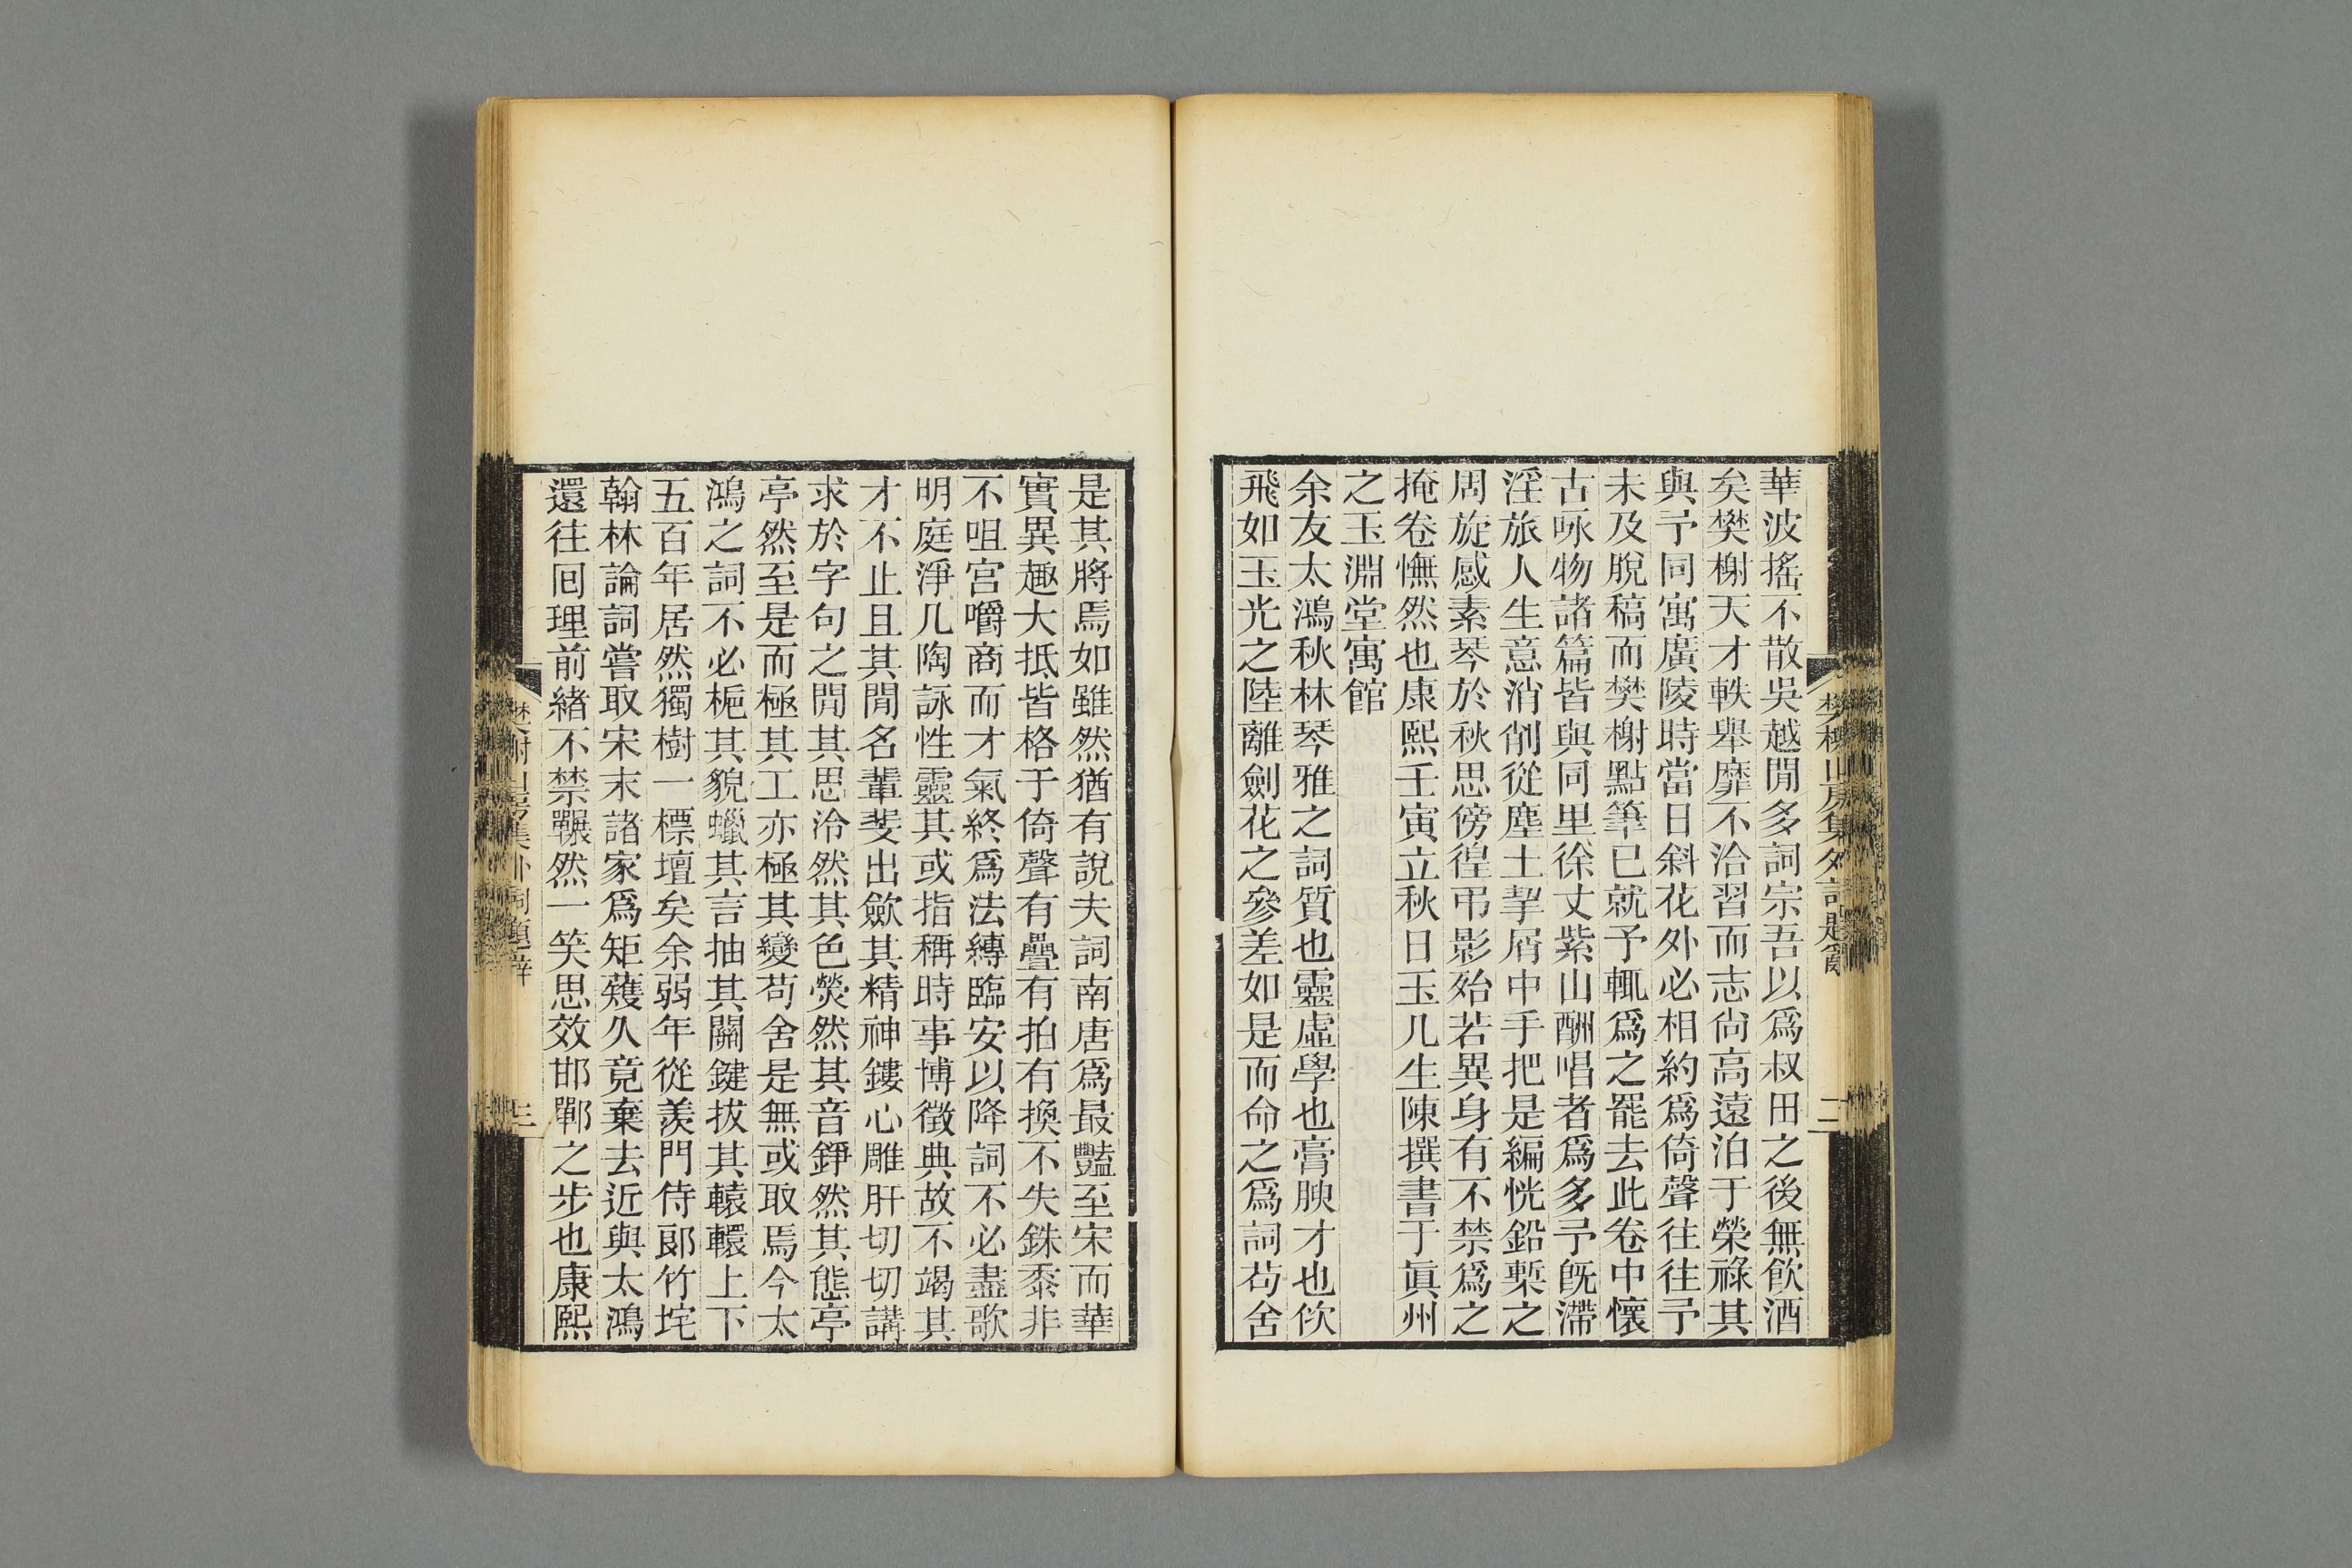 華波搖不散吳越閒多詞宗吾以爲叔田之後無飮酒
矣樊榭天才軼舉靡不洽習而志尙高遠泊于榮祿其
與予同寓廣陵時當日斜花外必相約爲倚聲往往予
未及脫稿而樊榭點筆已就予輒爲之罷去此卷中懷
古咏物諸篇皆與同里徐丈紫山酬唱者爲多予旣滯
淫旅人生意消削從塵土挈屑中手把是編恍鉛槧之
周旋感素琴於秋思傍徨弔影殆若異身有不禁爲之
掩卷憮然也康熙壬寅立秋日玉几生陳撰書于眞州
之玉淵堂寓館
余友太鴻秋林琴雅之詞質也靈虛學也膏腴才也佽
飛如玉光之陸離劍花之參差如是而命之爲詞苟舍
樊榭山房集外詞題辭
二
是其將焉如雖然猶有說夫詞南唐爲最豔至宋而華
實異趣大抵皆格于倚聲有疊有拍有換不失銖黍非
不咀宮嚼商而才氣終爲法縛臨安以降詞不必盡歌
明庭淨几陶詠性靈其或指稱時事博徵典故不竭其
才不止且其閒名輩斐出歛其精神鏤心雕肝切切講
求於字句之閒其思泠然其色熒然其音錚然其態亭
亭然至是而極其工亦極其變苟舍是無或取焉今太
鴻之詞不必梔其貌蠟其言抽其關鍵拔其轅轘上下
五百年居然獨樹一標壇矣余弱年從羨門侍郞竹垞
翰林論詞嘗取宋末諸家爲矩蒦久竟棄去近與太鴻
還往囘理前緒不禁囅然一笑思效邯鄲之步也康熙
樊榭山房集外詞題辭
三